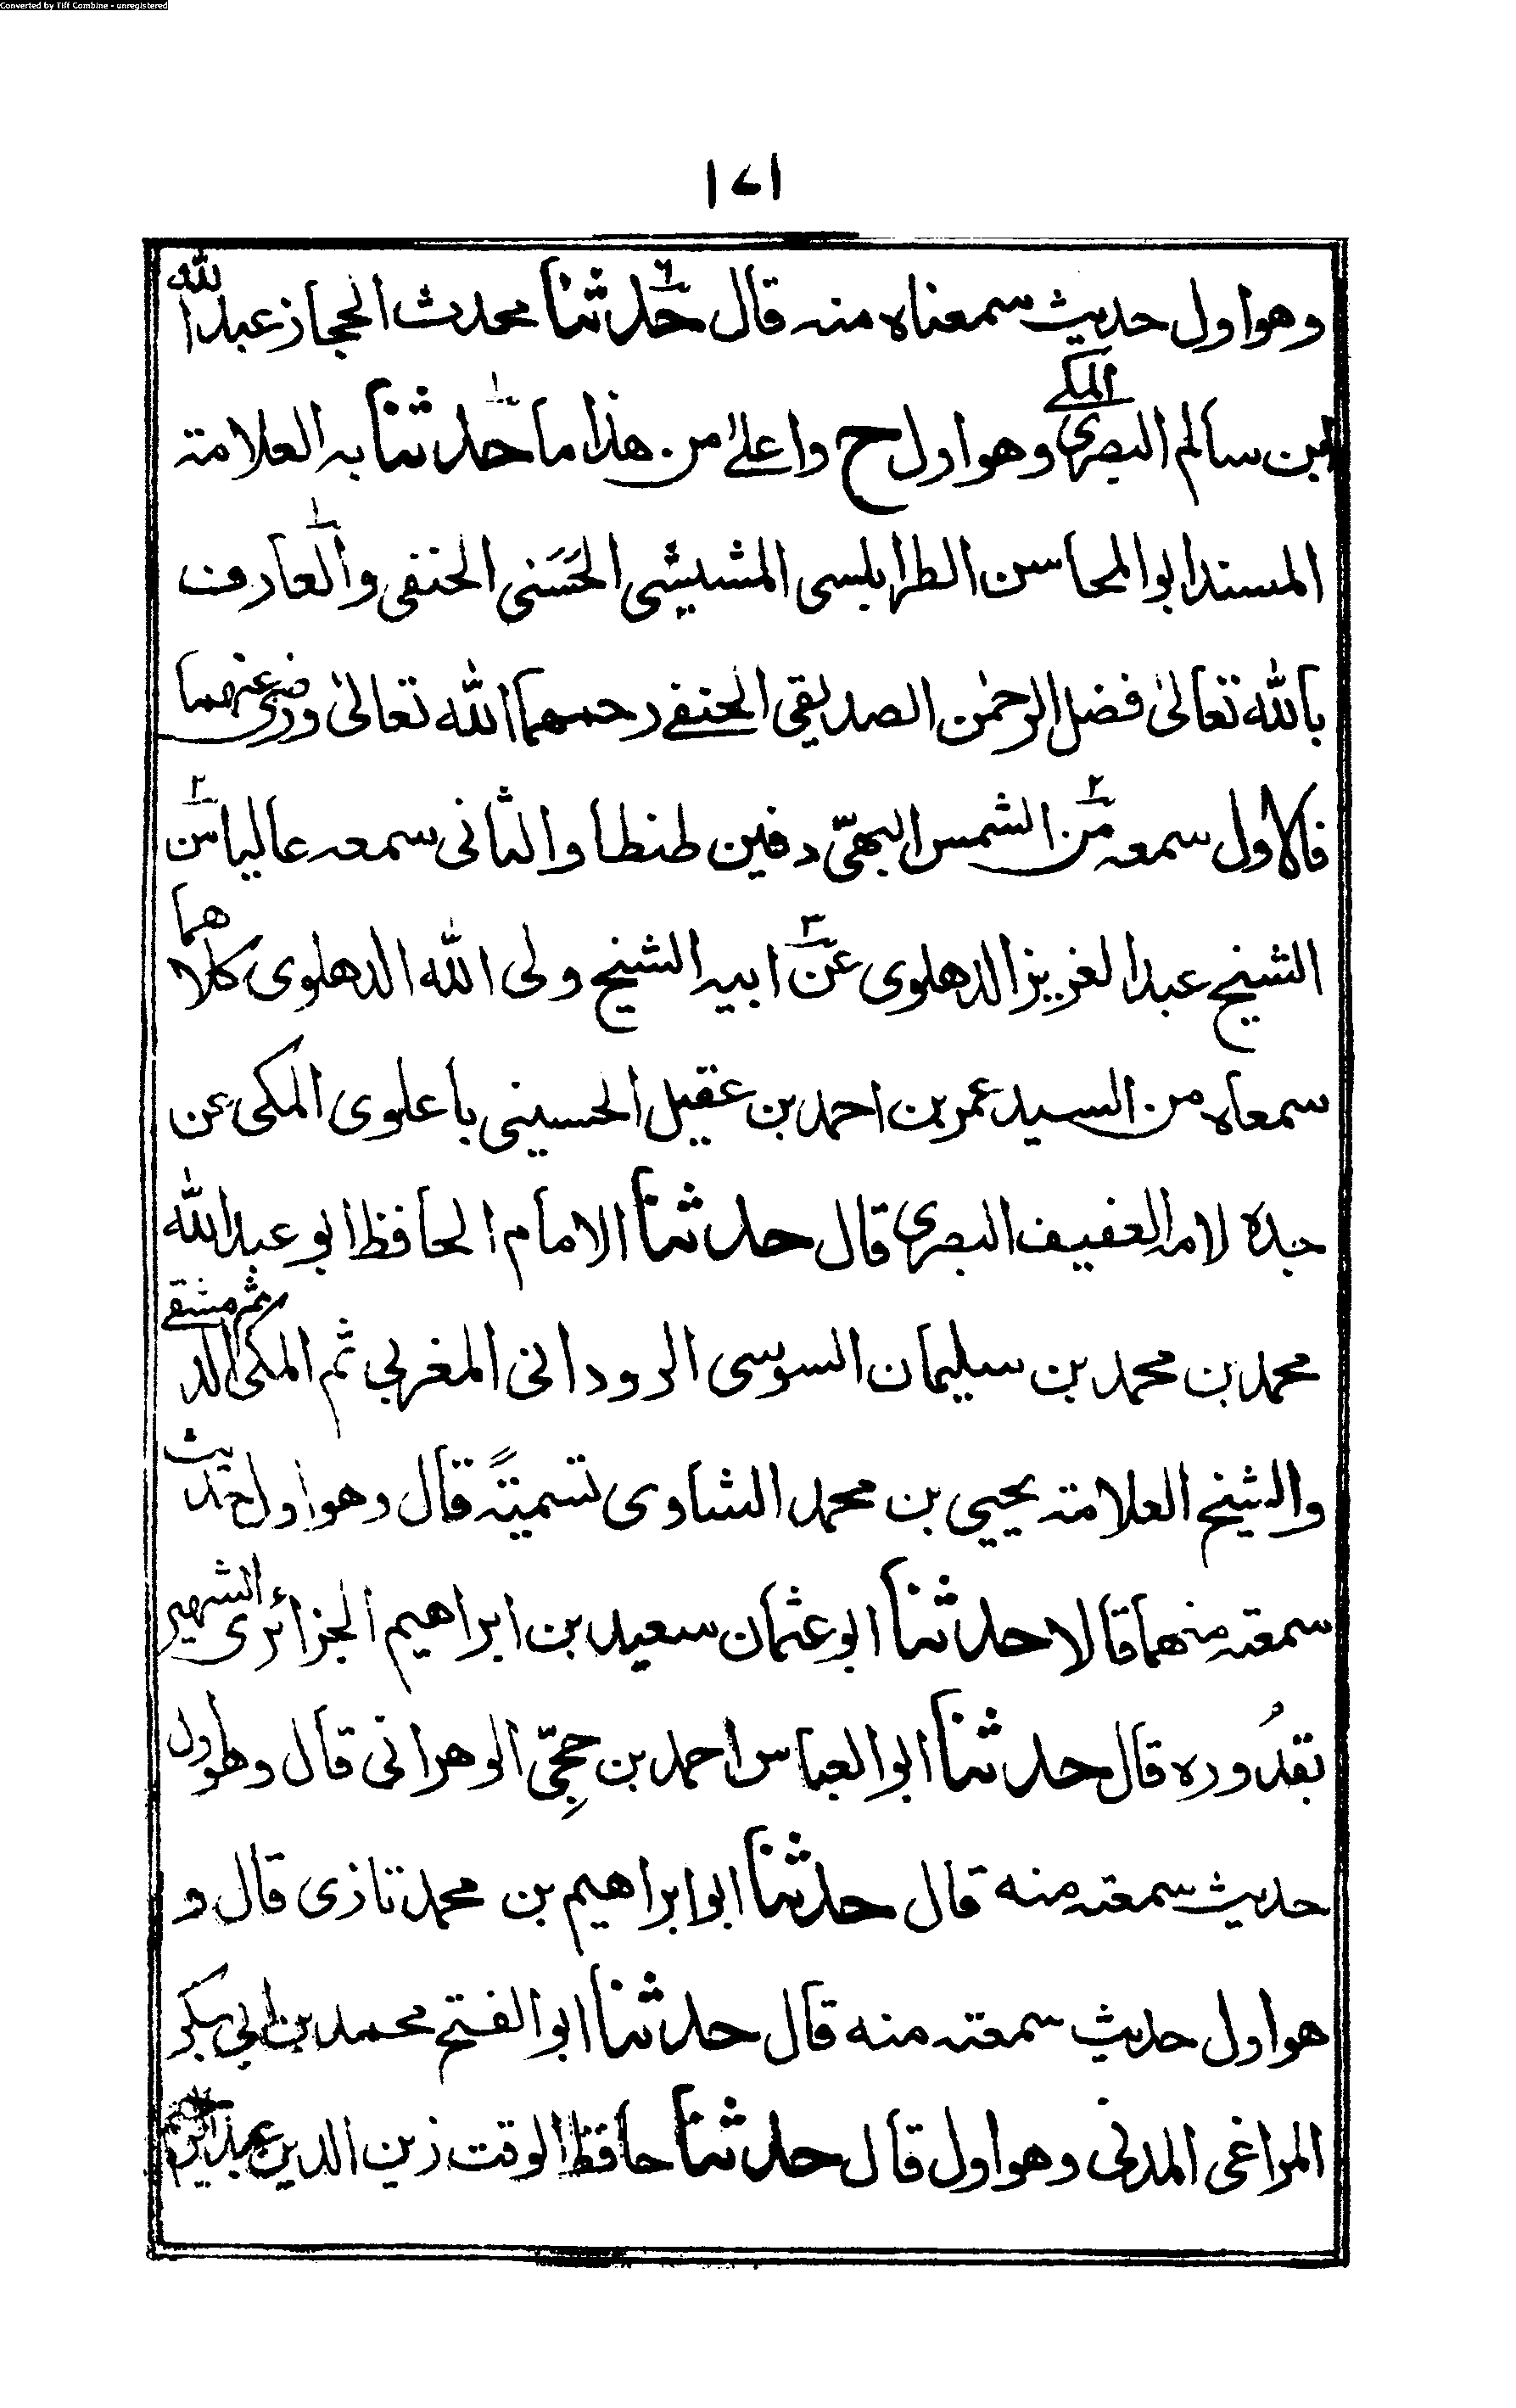 Converted by Tiff Combine - unregistered
١٧١
وهو اول حديث سمعناه منه قال حدثنا محدث الحجاز عبد الله
ابن سالم البصرى المكى وهو اول ح واعلىٰ من هذا ما حدثنا به العلامة
المسند ابو المحاسن الطرابلسى المشيشى الحَسَنى الحنفى والعارف
بالله تعالىٰ فضل الرحمٰن الصديقى الحنفى رحمهما الله تعالىٰ ورضى عنهما
فالاول سمعه من الشمس البهىّ دفين طنطا والثانى سمعه عاليا من
الشيخ عبد العزيز الدهلوى عن ابيه الشيخ ولى الله الدهلوى كلاهما
سمعاه من السيد عمر بن احمد بن عقيل الحسينى باعلوى المكى عن
جده لامه العفيف البصرى قال حدثنا الامام الحافظ ابو عبد الله
محمد بن محمد بن سليمان السوسى الرودانى المغربى ثم المكى ثم الدمشقى
والشيخ العلامة يحيى بن محمد الشاوى تسميتهً قال وهو اول حديث
سمعته منهما قالا حدثنا ابو عثمان سعيد بن ابراهيم الجزائرى الشهير
بقدُوره قال حدثنا ابو العباس احمد بن حجِّى الوهرانى قال وهو اول
حديث سمعته منه قال حدثنا ابو ابراهيم بن محمد تازى قال و
هو اول حديث سمعته منه قال حدثنا ابو الفتح محمد بن ابى بكر
المراغى المدنى وهو اول قال حدثنا حافظ الوقت زين الدين عبد الرحيم